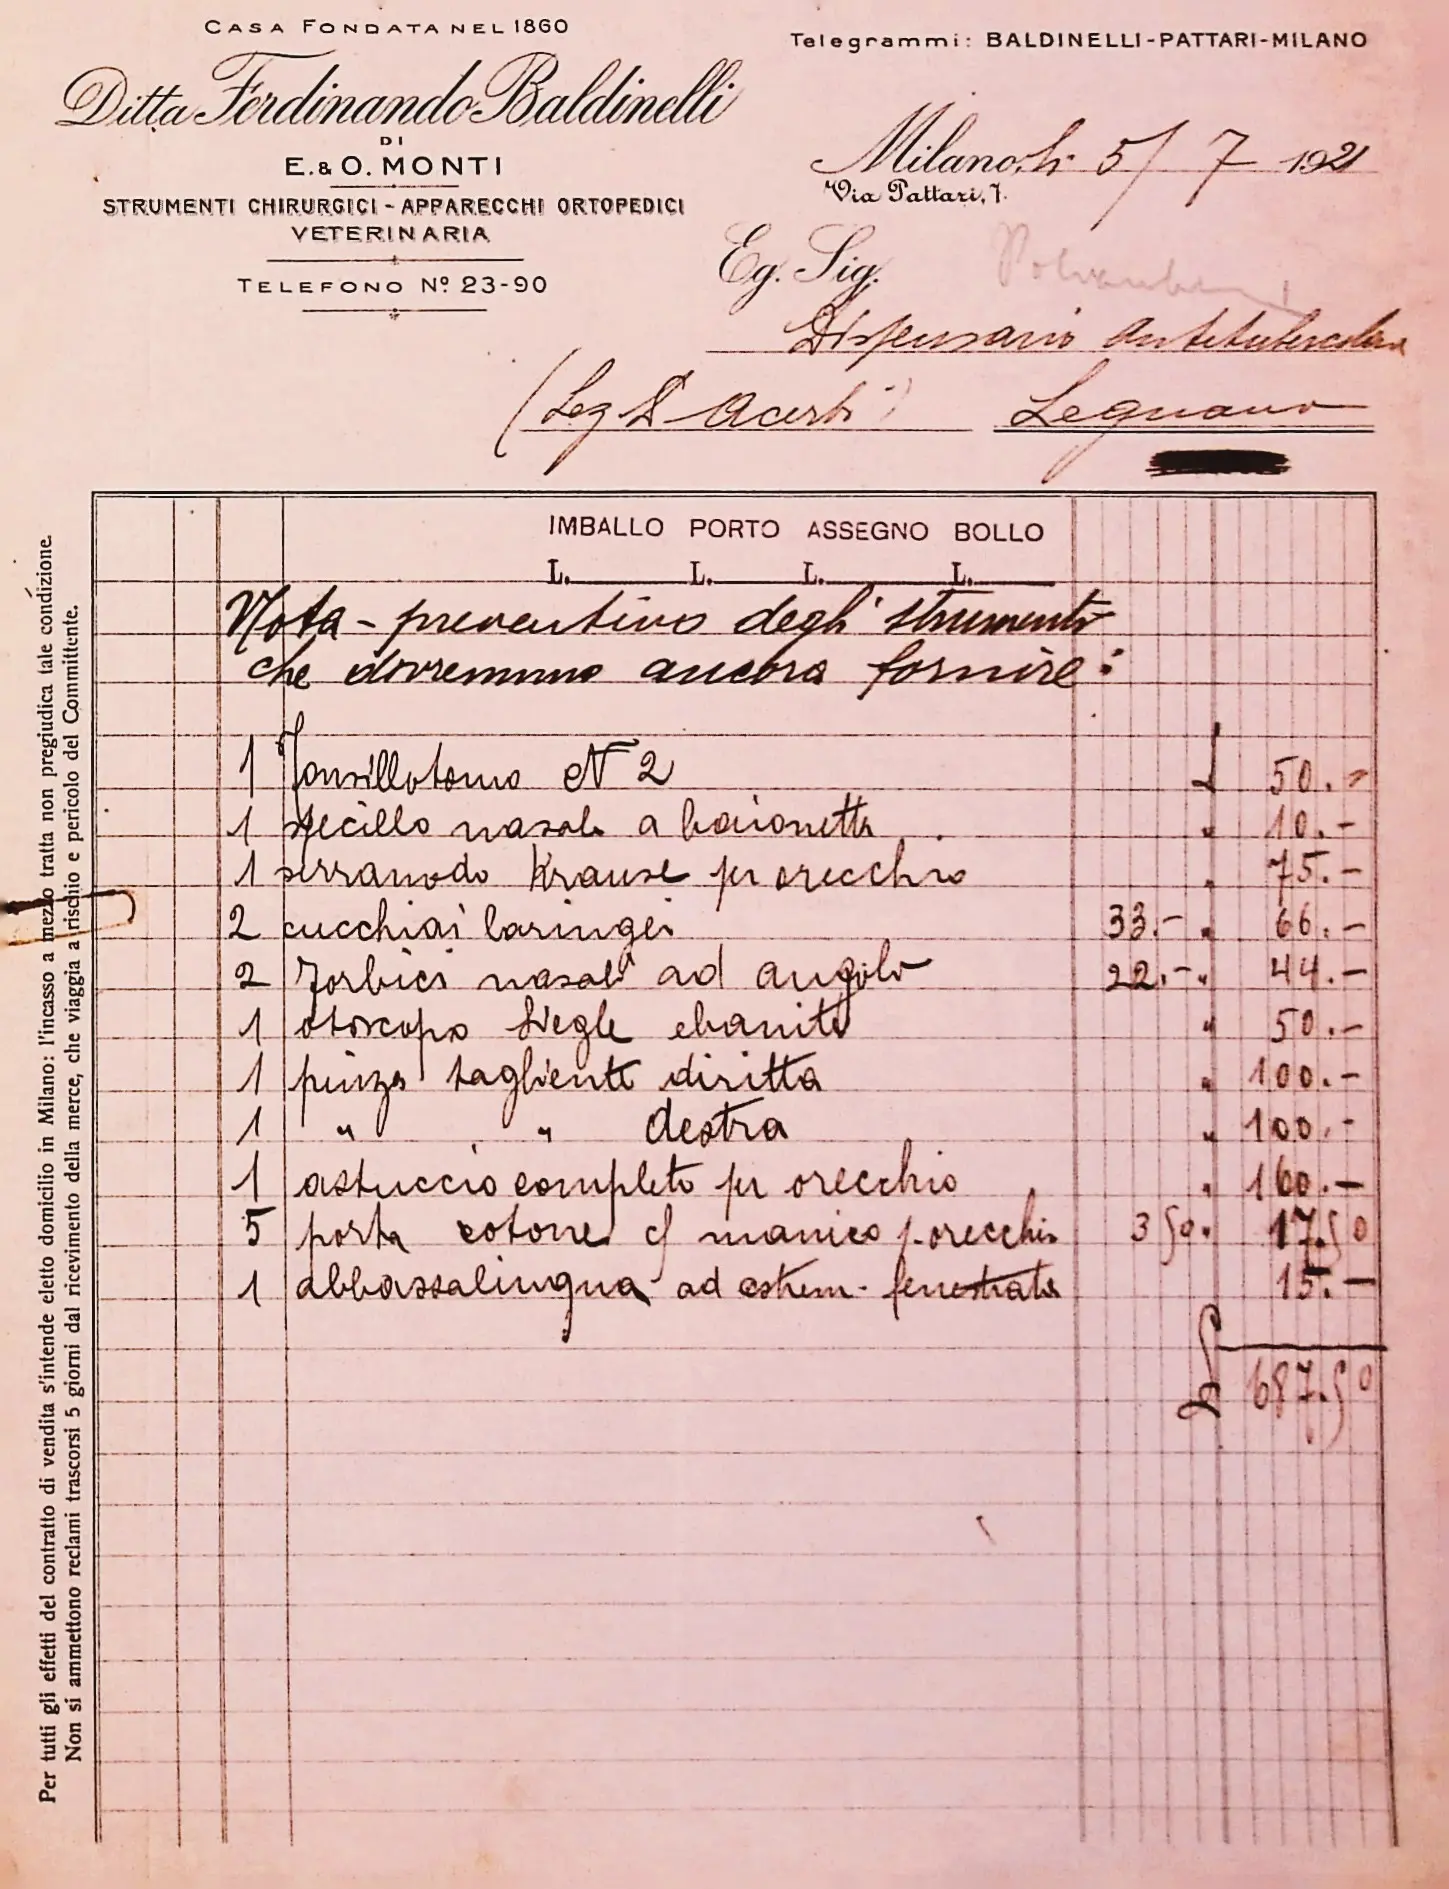 CASA FONDATA NEL 1860
Telegrammi: BALDINELLI-PATTARI-MILANO
Ditta Ferdinando Baldinelli
DI
E. & O. MONTI
STRUMENTI CHIRURGICI - APPARECCHI ORTOPEDICI
VETERINARIA
TELEFONO Nº 23-90
Milano, li 5/7 1921
Via Pattari, 7.
Eg. Sig.
Dispensario Antitubercolare
(Leg D Acerbi) Legnano
IMBALLO PORTO ASSEGNO BOLLO
L. L. L. L.
Nota - preventivo degli strumenti
che dovremmo ancora fornire:
1 Tonsillotomo N 2 £ 50.-
1 specillo nasale a baionetta " 10.-
1 serranodo Krause per orecchio " 75.-
2 cucchiai laringei 33.- " 66.-
2 forbici nasali ad angolo 22.- " 44.-
1 otoscopio Siegle ebanite " 50.-
1 pinza tagliente diritta " 100.-
1 " " destra " 100.-
1 astuccio completo per orecchio " 160.-
5 porta cotone c/ manico p. orecchio 3 50 " 17.50
1 abbassalingua ad estrem. fenestrata 15.-
£ 687.50
Per tutti gli effetti del contratto di vendita s'intende eletto domicilio in Milano: l'incasso a mezzo tratta non pregiudica tale condizione.
Non si ammettono reclami trascorsi 5 giorni dal ricevimento della merce, che viaggia a rischio e pericolo del Committente.